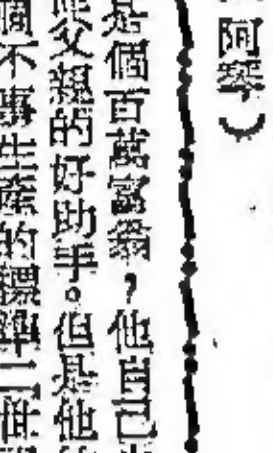 阿琴）
是個百萬富翁，他自己
父親的好助手。但是他
不事生產的
二世